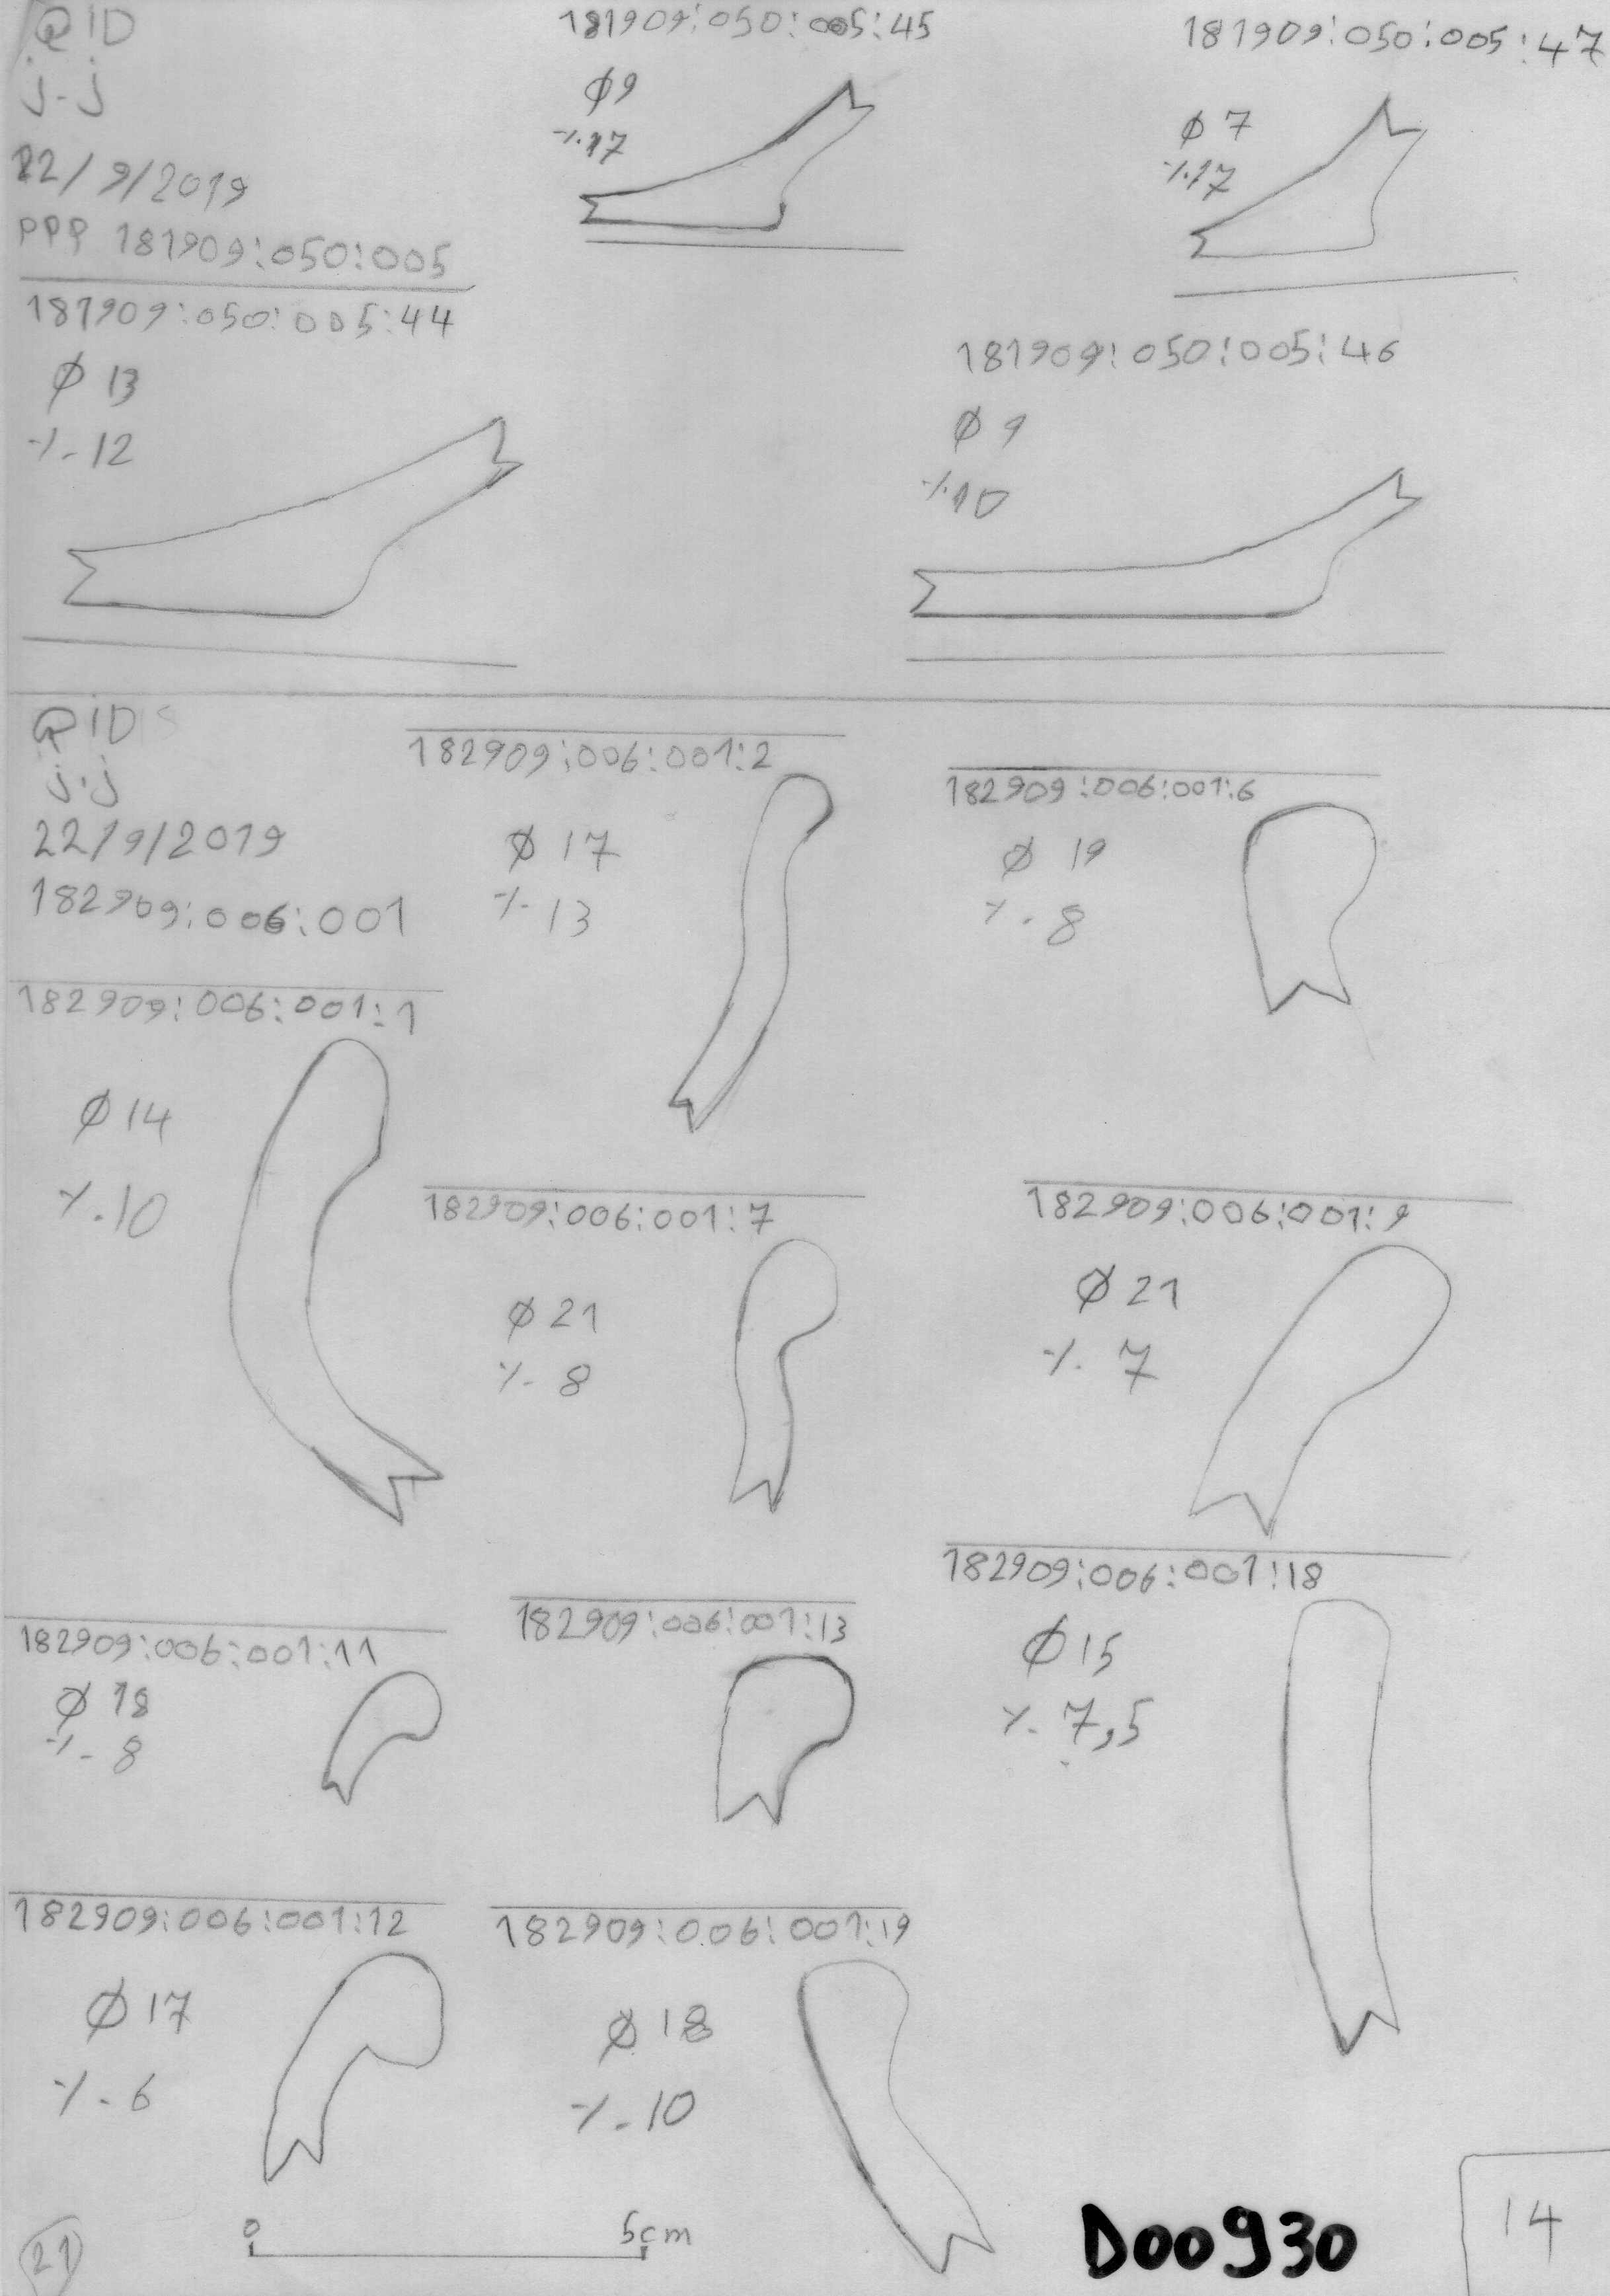 QID
j-j
22/9/2019
PPP 181909:050:005
181909:050:005:44
Ø 13
%. 12
181909:050:005:45
Ø9
%.17
181909:050:005:47
Ø 7
%.17
181909:050:005:46
Ø 9
%10
QID
j.j
22/9/2019
182909:006:001
182909:006:001:1
Ø 14
%.10
182909:006:001:2
Ø 17
%. 13
182909:006:001:6
Ø 19
%. 8
182909:006:001:7
Ø 21
%. 8
182909:006:001:9
Ø 21
%. 7
182909:006:001:11
Ø 18
%. 8
182909:006:001:13
182909:006:001:18
Ø 15
%. 7,5
182909:006:001:12
Ø 17
%. 6
182909:006:001:19
Ø 18
%. 10
0 5cm
21
D00930
14